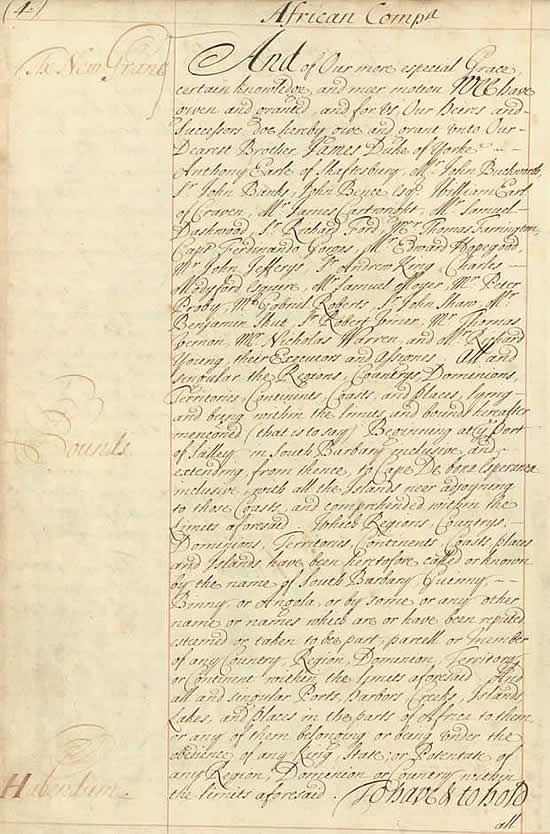 (4)
African Compª
The New Grant
And of Our more especial Grace,
certain knowledge, and meer motion WEE have
given and granted, and for Us Our Heires and
Successors doe hereby give and grant unto Our
Dearest Brother James Duke of Yorke
Anthony Earle of Shaftesbury, Mr. John Buckworth,
Sr. John Banks, John Bence Esqr. William Earl
of Craven, Mr. James Cartwright, Mr. Samuel
Dashwood, Sr. Richard Ford Mr. Thomas Farrington,
Capt Ferdinando Gorges, Mr. Edward Hopegood,
Mr. John Jefferys, Sr. Andrew King, Charles
Modyford Esquire, Mr. Samuel Moyer Mr. Peter
Proby, Mr. Gabriel Roberts, Sr. John Shaw, Mr.
Benjamin Skut, Sr. Robert Viner, Mr. Thomas
Vernon, Mr. Nicholas Warren, and Mr. Richard
Young, their Executors and Assignes, All and
singular the Regions, Countrys Dominions,
Territories, Continents Coasts, and places, lying
and being within the limits and bounds hereafter
Bounds
mencioned (that is to say) Beginning at ye Port
of Salley in South Barbary inclusive and
extending from thence, to Cape De bona Esperanza
inclusive, with all the Islands neer adjoyning
to those Coasts, and comprehended within the
limits aforesaid. Which Regions, Countrys,
Dominions, Territories, Continents, Coasts places
and Islands have been heretofore called or known
by the name of South Barbary, Guinny,
Binny, or Angola, or by some or any other
name or names which are or have been reputed
esteemed or taken to be part, parcell or Member
of any Country, Region, Dominion, Territory
or Continent within the limits aforesaid And
all and singular Ports, Harbors Creeks, Islands,
Lakes, and places in the parts of Africa to them
or any of them belonging or being under the
obedience of any King, State, or Potentate of
any Region, Dominion or Country within
Habendum
the limits aforesaid. To have & to hold
all